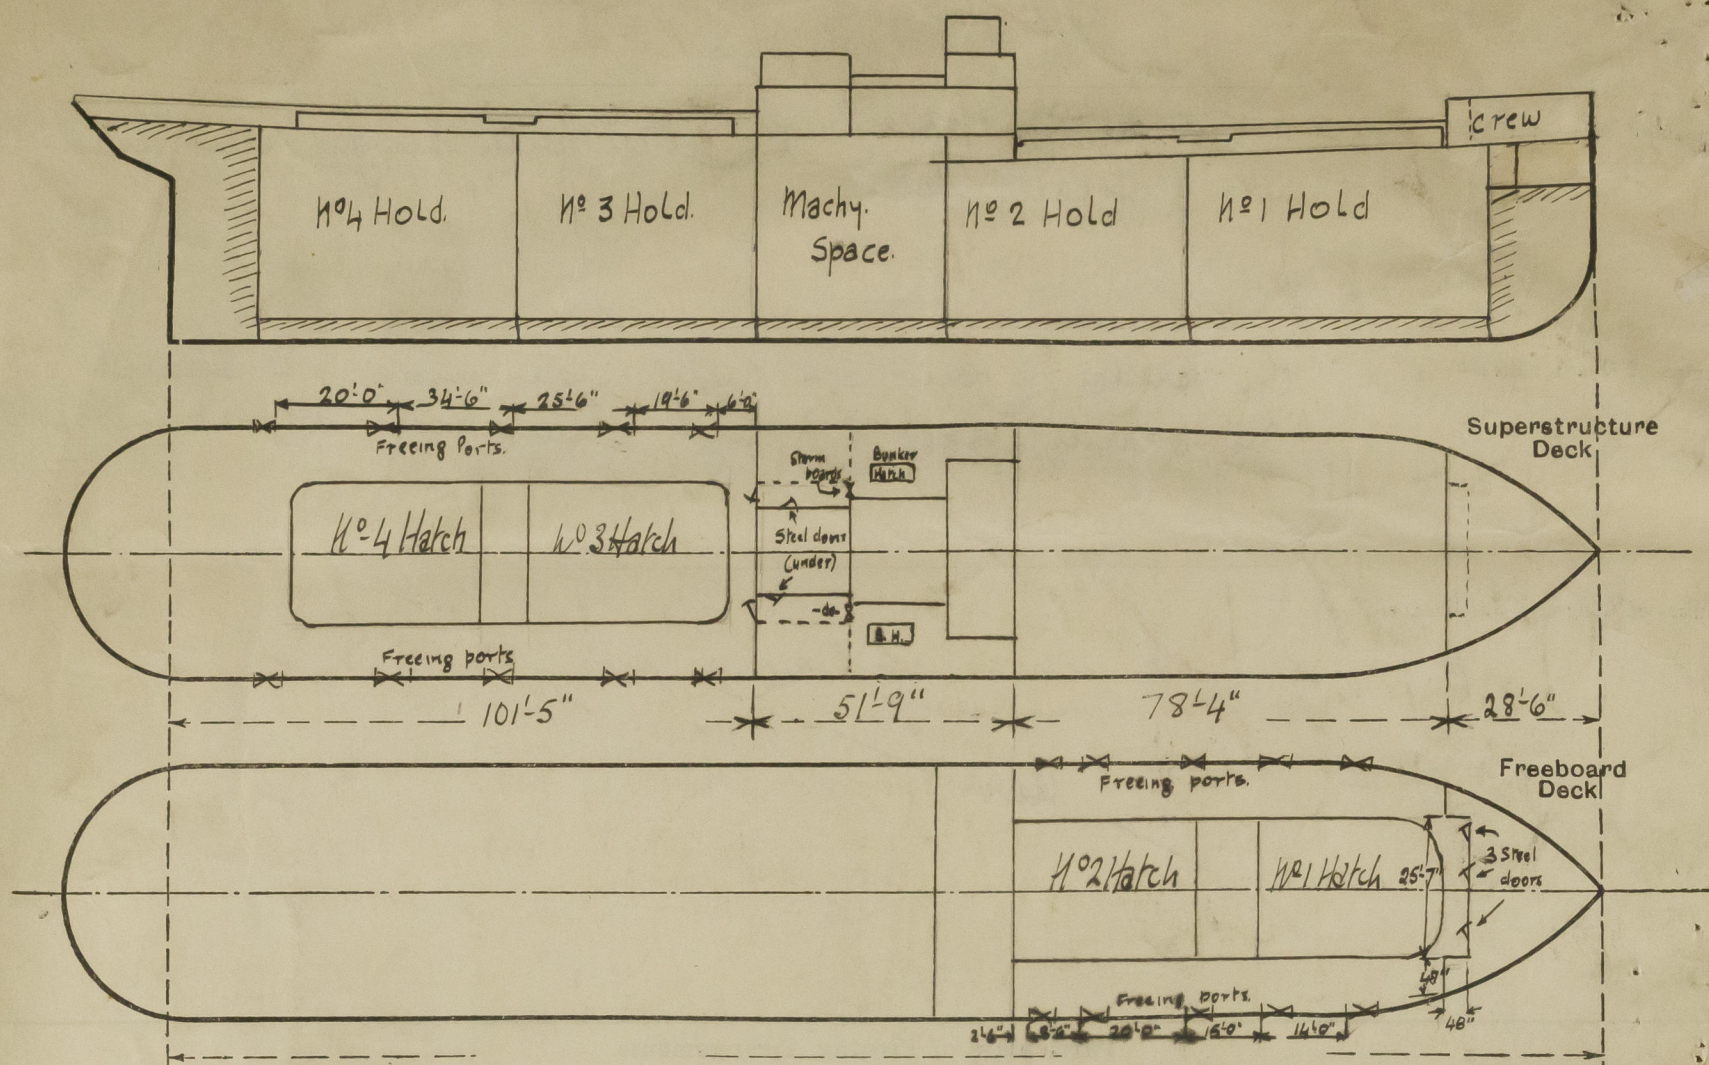 crew
Nº4 Hold.
Nº 3 Hold.
Machy.
Space.
Nº 2 Hold
Nº1 Hold
20'-0"
34'-6"
25'-6"
19'-6"
6'-0"
Freeing Ports.
Superstructure
Deck
Storm
boards
Bunker
Hatch
Nº4 Hatch
Nº3 Hatch
Steel doors
(under)
-do-
B.H.
Freeing ports
101'-5"
51'-9"
78'-4"
28'-6"
Freeing ports.
Freeboard
Deck
Nº2 Hatch
Nº1 Hatch
25'-7"
3 Steel
doors
48"
Freeing ports.
2'-6"
8'-6"
20'-0"
15'-0"
14'-0"
48"